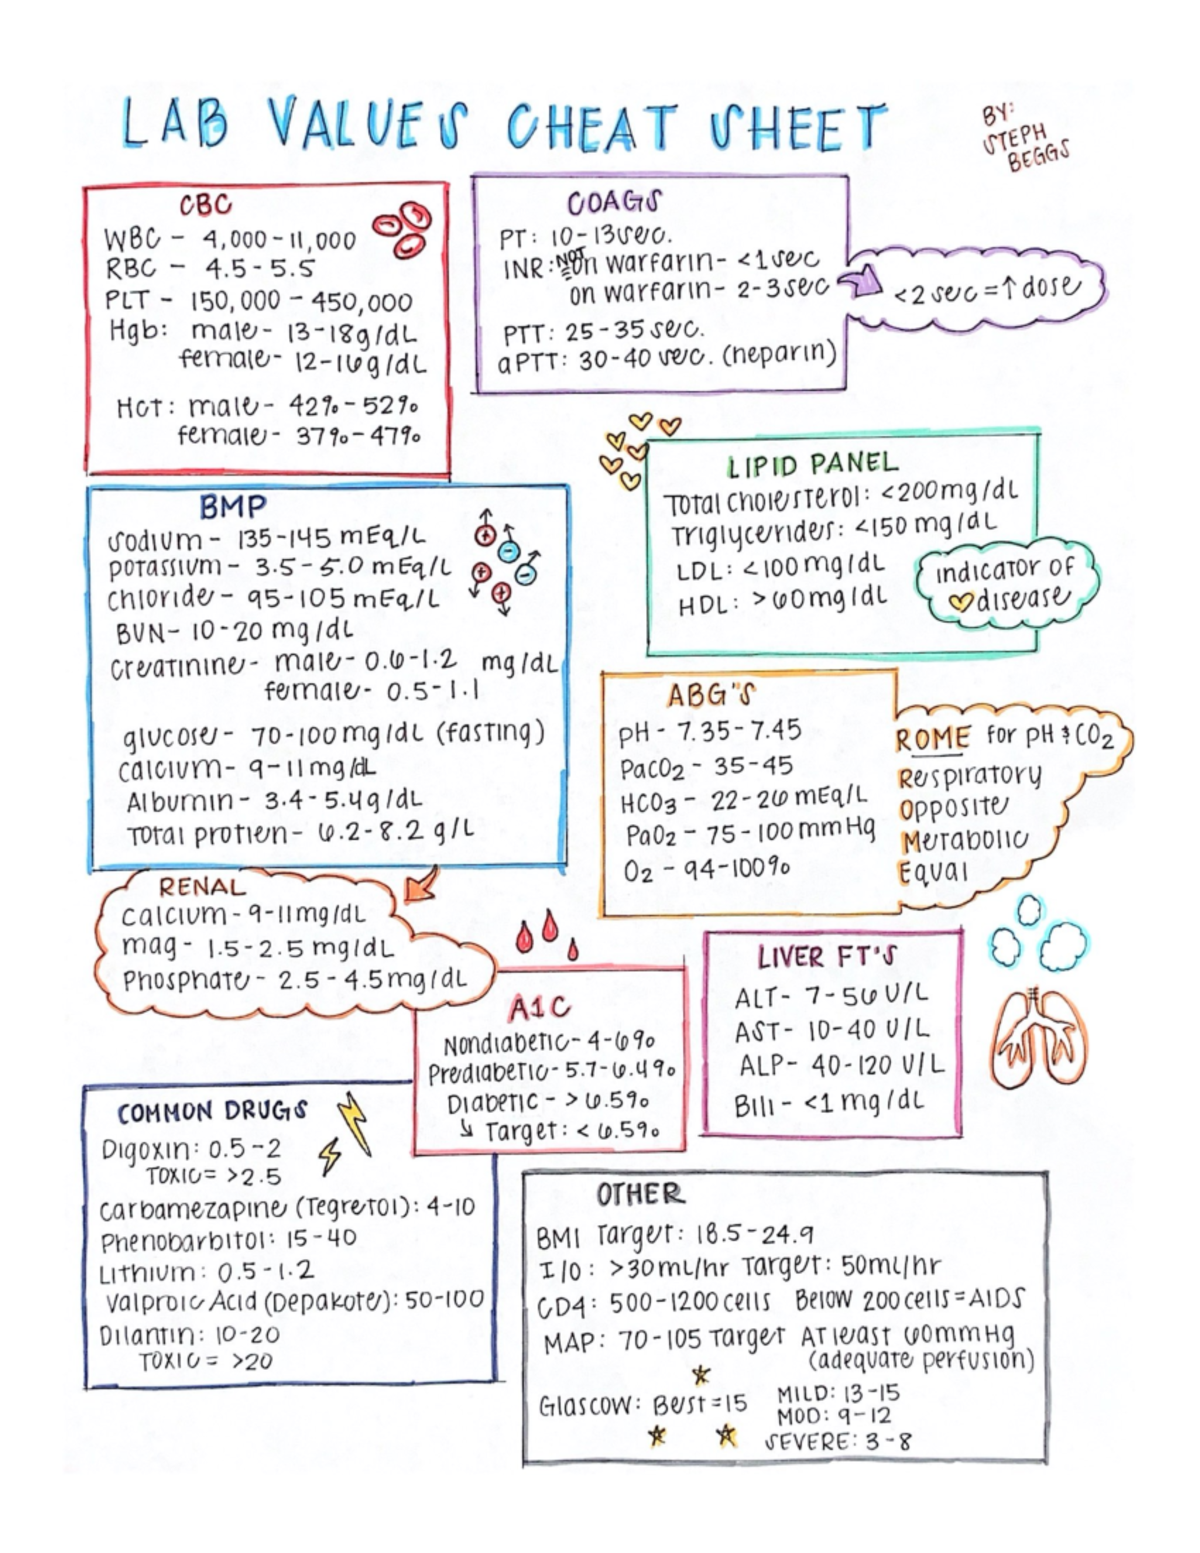 LAB VALUES CHEAT SHEET
BY:
STEPH
BEGGS
CBC
WBC - 4,000-11,000
RBC - 4.5-5.5
PLT - 150,000 - 450,000
Hgb: male- 13-18g/dL
female- 12-16g/dL
Hct: male- 42%-52%
female- 37%-47%
COAGS
PT: 10-13sec.
INR: NOT on warfarin- <1sec
on warfarin- 2-3sec
<2 sec=↑dose
PTT: 25-35 sec.
aPTT: 30-40 sec. (heparin)
BMP
sodium- 135-145 mEq/L
potassium- 3.5-5.0 mEq/L
chloride- 95-105 mEq/L
BUN- 10-20 mg/dL
creatinine- male- 0.6-1.2 mg/dL
female- 0.5-1.1
glucose- 70-100mg/dL (fasting)
calcium- 9-11mg/dL
Albumin- 3.4-5.4g/dL
Total protien- 6.2-8.2 g/L
LIPID PANEL
Total cholesterol: <200mg/dL
Triglycerides: <150 mg/dL
LDL: <100mg/dL
HDL: >60mg/dL
indicator of
disease
ABG"S
pH - 7.35-7.45
PaCO2 - 35-45
HCO3 - 22-26 mEq/L
PaO2 - 75-100mmHg
O2 - 94-100%
ROME for pH & CO2
Respiratory
Opposite
Metabolic
Equal
RENAL
calcium-9-11mg/dL
mag- 1.5-2.5 mg/dL
Phosphate- 2.5-4.5mg/dL
A1C
Nondiabetic-4-6%
Prediabetic-5.7-6.4%
Diabetic - >6.5%
↳ Target: <6.5%
LIVER FT'S
ALT- 7-56 U/L
AST- 10-40 U/L
ALP- 40-120 U/L
Bili- <1mg/dL
COMMON DRUGS
Digoxin: 0.5-2
TOXIC= >2.5
Carbamezapine (Tegretol): 4-10
Phenobarbitol: 15-40
Lithium: 0.5-1.2
Valproic Acid (Depakote): 50-100
Dilantin: 10-20
TOXIC= >20
OTHER
BMI Target: 18.5-24.9
I/O: >30mL/hr Target: 50mL/hr
CD4: 500-1200cells Below 200cells=AIDS
MAP: 70-105 Target At least 60mmHg
(adequate perfusion)
Glascow: Best=15 MILD: 13-15
MOD: 9-12
SEVERE: 3-8